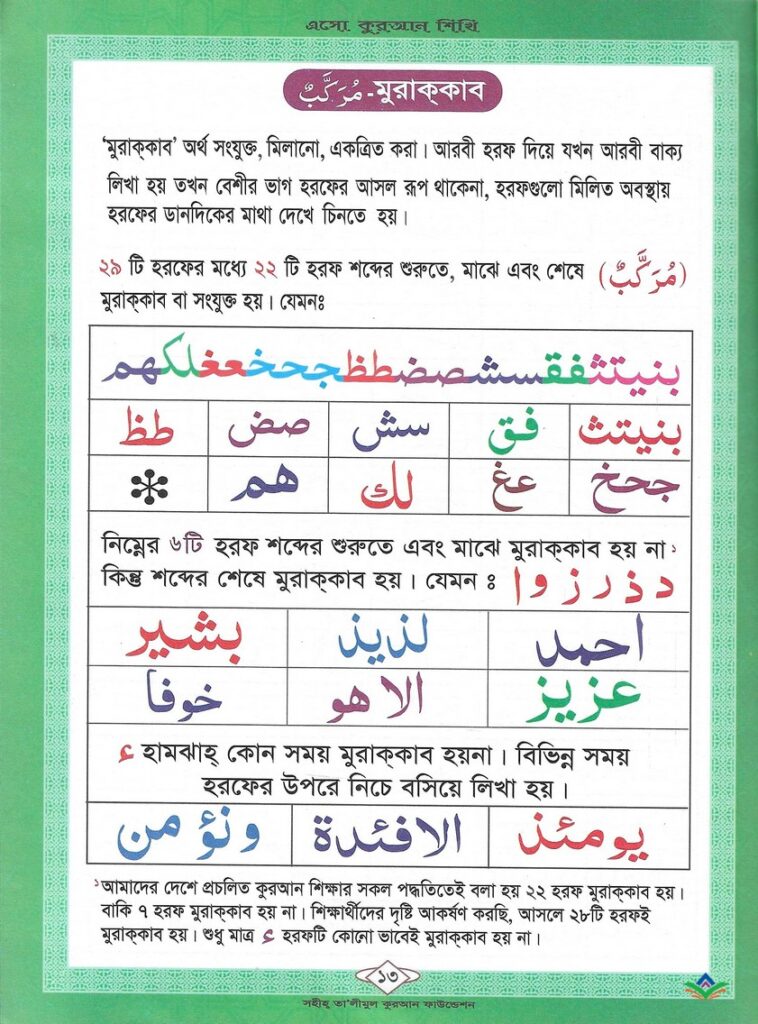 এসো কুরআন শিখি
مُرَكَّبٌ-মুরাক্কাব
‘মুরাক্কাব’ অর্থ সংযুক্ত, মিলানো, একত্রিত করা। আরবী হরফ দিয়ে যখন আরবী বাক্য
লিখা হয় তখন বেশীর ভাগ হরফের আসল রূপ থাকেনা, হরফগুলো মিলিত অবস্থায়
হরফের ডানদিকের মাথা দেখে চিনতে হয়।
২৯ টি হরফের মধ্যে ২২ টি হরফ শব্দের শুরুতে, মাঝে এবং শেষে (مُرَكَّبٌ)
মুরাক্কাব বা সংযুক্ত হয়। যেমনঃ
بنيتثفقسشصضطظجحخعغلكهم
بنيتث فق سش صض طظ
جحخ عغ لك هم
নিম্নের ৬টি হরফ শব্দের শুরুতে এবং মাঝে মুরাক্কাব হয় না ১
কিন্তু শব্দের শেষে মুরাক্কাব হয়। যেমন ঃ د ذ ر ز و ا
احمد لذيذ بشير
عزيز الاهو خوفا
ء হামঝাহ্ কোন সময় মুরাক্কাব হয়না। বিভিন্ন সময়
হরফের উপরে নিচে বসিয়ে লিখা হয়।
يومئذ الافئدة ونؤمن
১আমাদের দেশে প্রচলিত কুরআন শিক্ষার সকল পদ্ধতিতেই বলা হয় ২২ হরফ মুরাক্কাব হয়।
বাকি ৭ হরফ মুরাক্কাব হয় না। শিক্ষার্থীদের দৃষ্টি আকর্ষণ করছি, আসলে ২৮টি হরফই
মুরাক্কাব হয়। শুধু মাত্র ء হরফটি কোনো ভাবেই মুরাক্কাব হয় না।
১৩
সহীহ্ তা'লীমুল কুরআন ফাউন্ডেশন